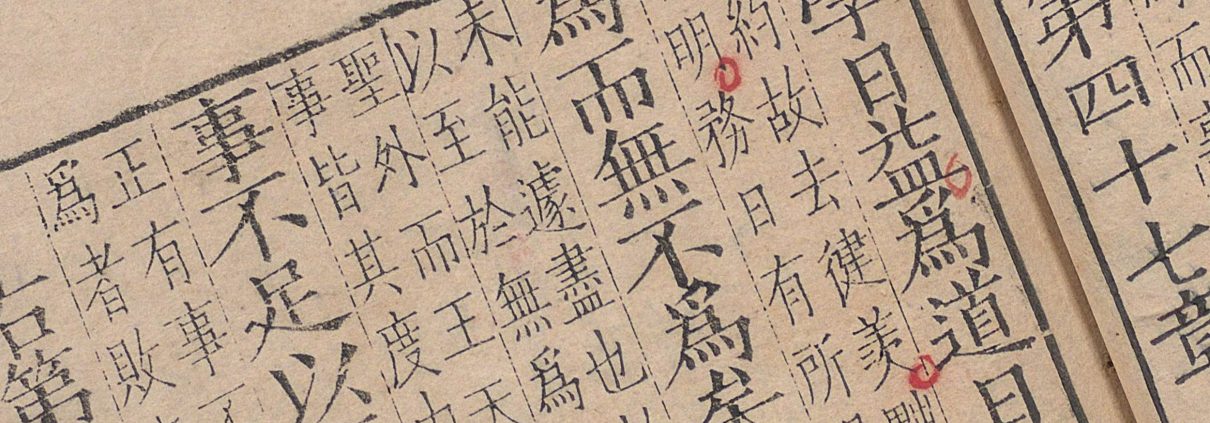 而
第四十七章
學日益爲道日
約故去徤羡黜
明務日有所
爲而無不爲矣
未能遽盡也
以至於無爲
聖外而王天
事皆其度
事不足以
正有事不
爲者敗
右第